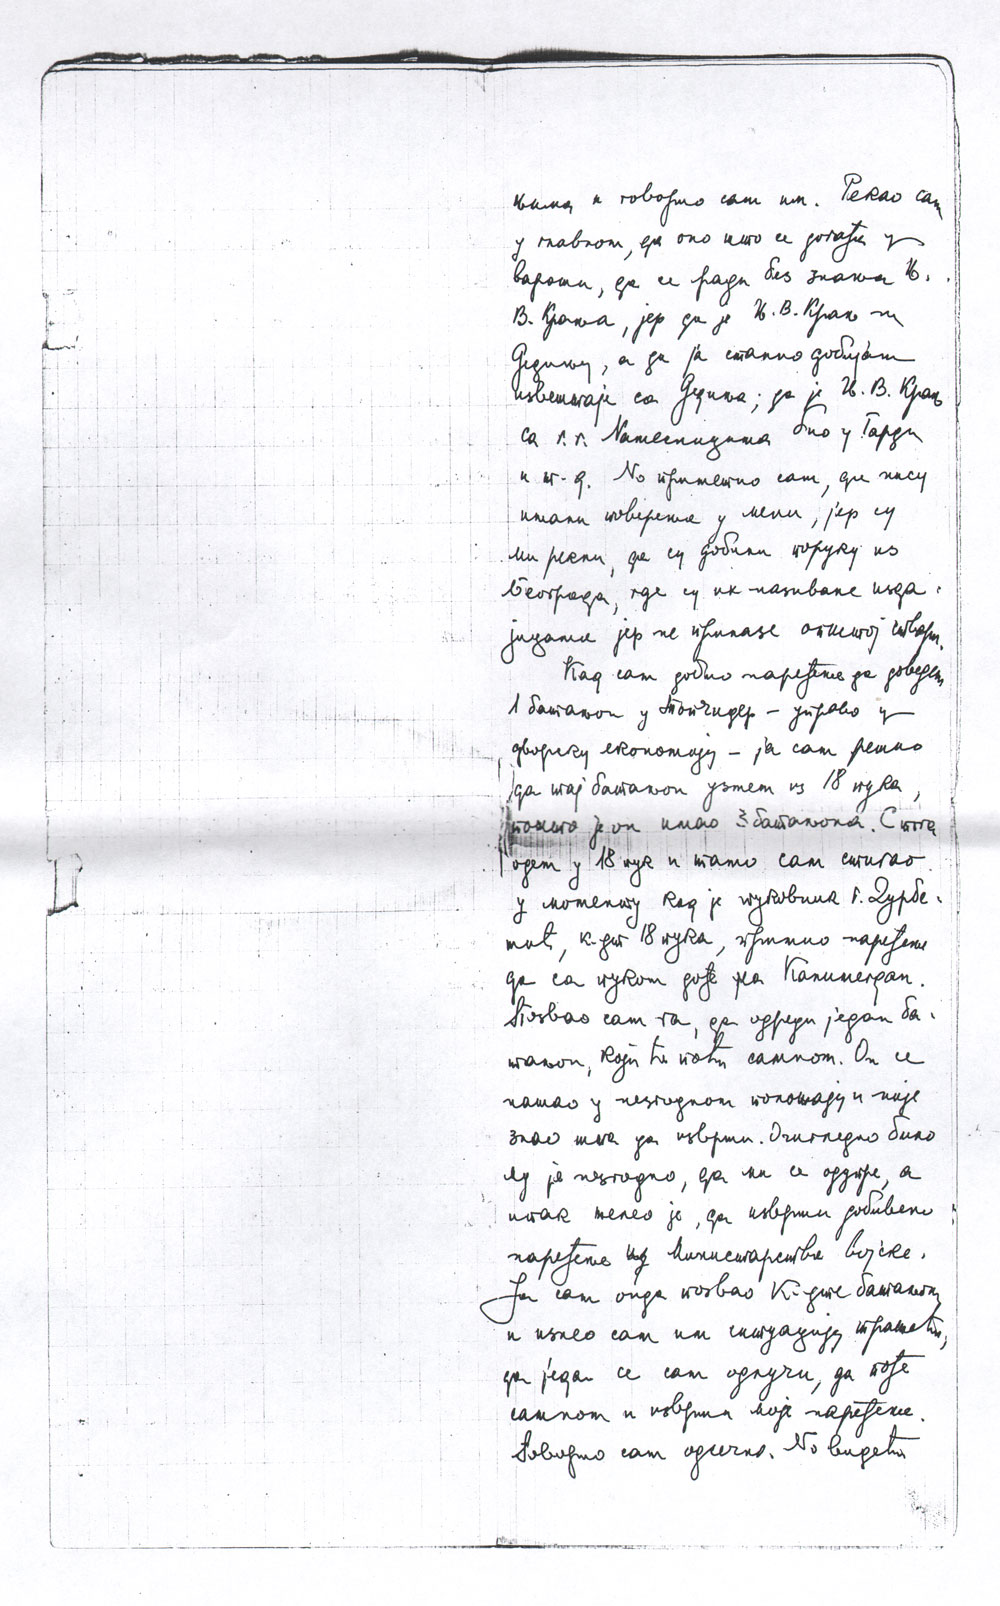 њима и говорио сам им. Рекао сам
у главном, да оно што се догађа у
вароши, да се ради без знања Њ.
В. Краља, јер да је Њ. В. Краљ на
Дедињу, а да ја стално добијам
извештаје са Дедиња; да је Њ. В. Краљ
са г.г. Намесницима био у Гарди
и т.д. No приметио сам, да нису
имали поверење у мени, јер су
ми рекли, да су добили поруку из
Београда, где су их називане изда-
јицама јер не прилазе општој ствари.
Кад сam добио наређење да доведем
1 батаљон у Топчидер – управо у
дворску економију – ја сам решио
да тај батаљон узмем из 18 пука,
пошто је он имао 3 батаљона. Стога
одем у 18 пук и тамо сам стигао
у моменту кад је пуковник г. Ђурбе-
к-дт 18 пука, примио наређење
да са пуком дође на Калимегдан.
Позвао сам га, да одреди један ба-
таљон, који ће поћи самном. Он се
нашао у незгодном положају и није
знао шта да изврши. Очигледно било
му је незгодно, да ми се одупре, а
ипак желео је, да изврши добивено
наређење од Министарства Војске.
Ја сам онда позвао К-дте батаљона
и изнео сам им ситуацију тражећи,
да један се сам одлучи, да пође
самном и изврши моје наређење.
Говорио сам одсечно. No видећи